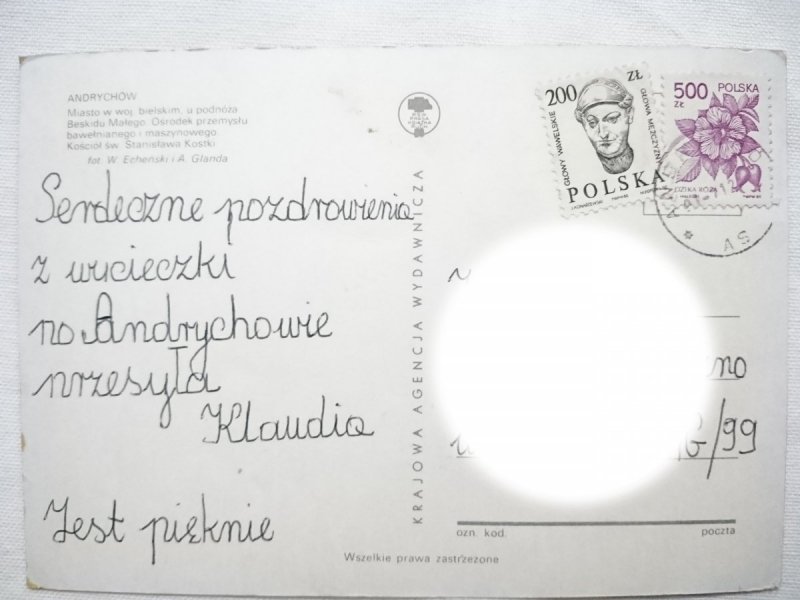 ANDRYCHÓW
Miasto w woj. bielskim, u podnóża
Beskidu Małego. Ośrodek przemysłu
bawełnianego i maszynowego.
Kościół św. Stanisława Kostki
fot. W. Echeński i A. Glanda
Serdeczne pozdrowienia
z wycieczki
po Andrychowie
przesyła
Klaudia
Jest pięknie
KRAJOWA AGENCJA WYDAWNICZA
RSW PRASA KSIĄŻKA RUCH
200 ZŁ
GŁOWY WAWELSKIE
GŁOWA MĘŻCZYZNY
POLSKA
500 ZŁ
POLSKA
DZIKA RÓŻA
AS
no
6/99
ozn. kod.
poczta
Wszelkie prawa zastrzeżone